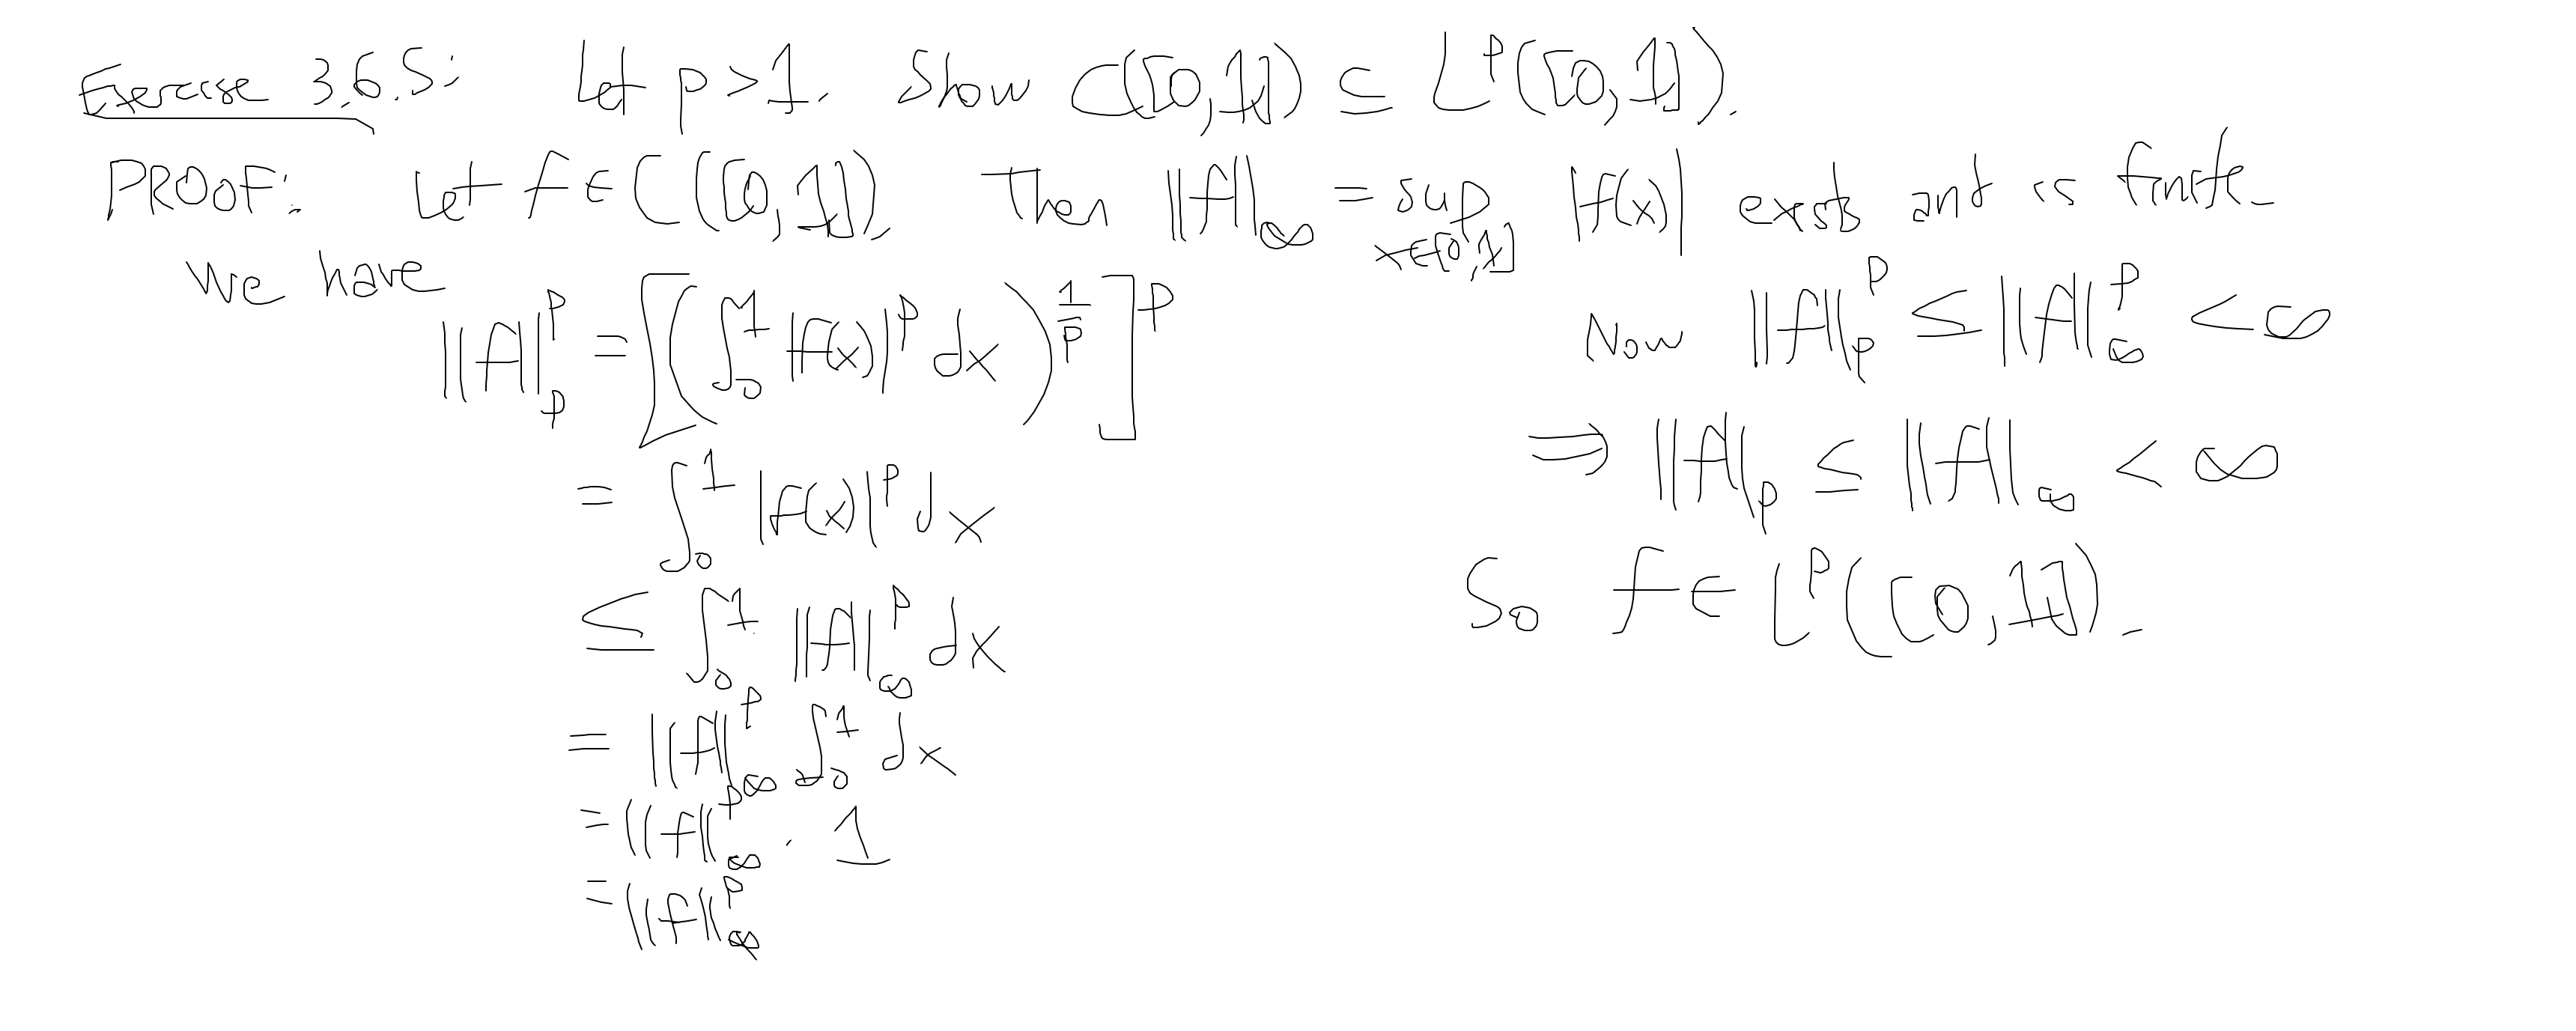 Exercise 3.6.5: Let p > 1. Show C([0,1]) ⊆ L^p([0,1]).
PROOF: Let f ∈ C([0,1]). Then ||f||_∞ = sup_{x∈[0,1]} |f(x)| exists and is finite.
We have
||f||_p^p = [(∫_0^1 |f(x)|^p dx)^{1/p}]^p
= ∫_0^1 |f(x)|^p dx
≤ ∫_0^1 ||f||_∞^p dx
= ||f||_∞^p ∫_0^1 dx
= ||f||_∞^p · 1
= ||f||_∞^p
Now ||f||_p^p ≤ ||f||_∞^p < ∞
⇒ ||f||_p ≤ ||f||_∞ < ∞
So f ∈ L^p([0,1]).